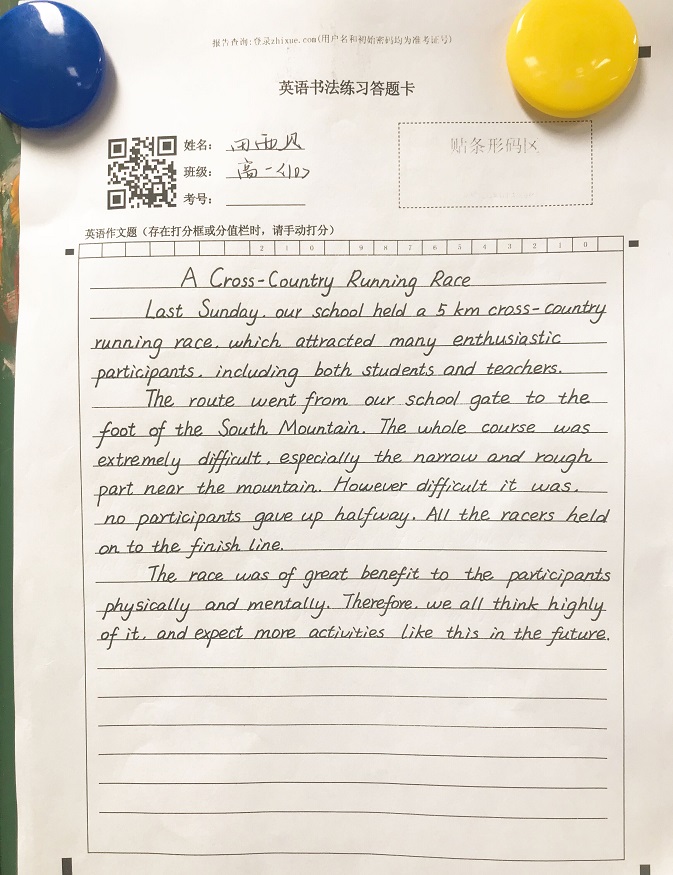 报告查询:登录zhixue.com(用户名和初始密码均为准考证号)
英语书法练习答题卡
姓名: 田雨
班级: 高一〈10〉
考号:
贴条形码区
英语作文题(存在打分框或分值栏时,请手动打分)
2 1 0 9 8 7 6 5 4 3 2 1 0
A Cross-Country Running Race
Last Sunday, our school held a 5 km cross-country
running race, which attracted many enthusiastic
participants, including both students and teachers.
The route went from our school gate to the
foot of the South Mountain. The whole course was
extremely difficult, especially the narrow and rough
part near the mountain. However difficult it was,
no participants gave up halfway. All the racers held
on to the finish line.
The race was of great benefit to the participants
physically and mentally. Therefore, we all think highly
of it, and expect more activities like this in the future.